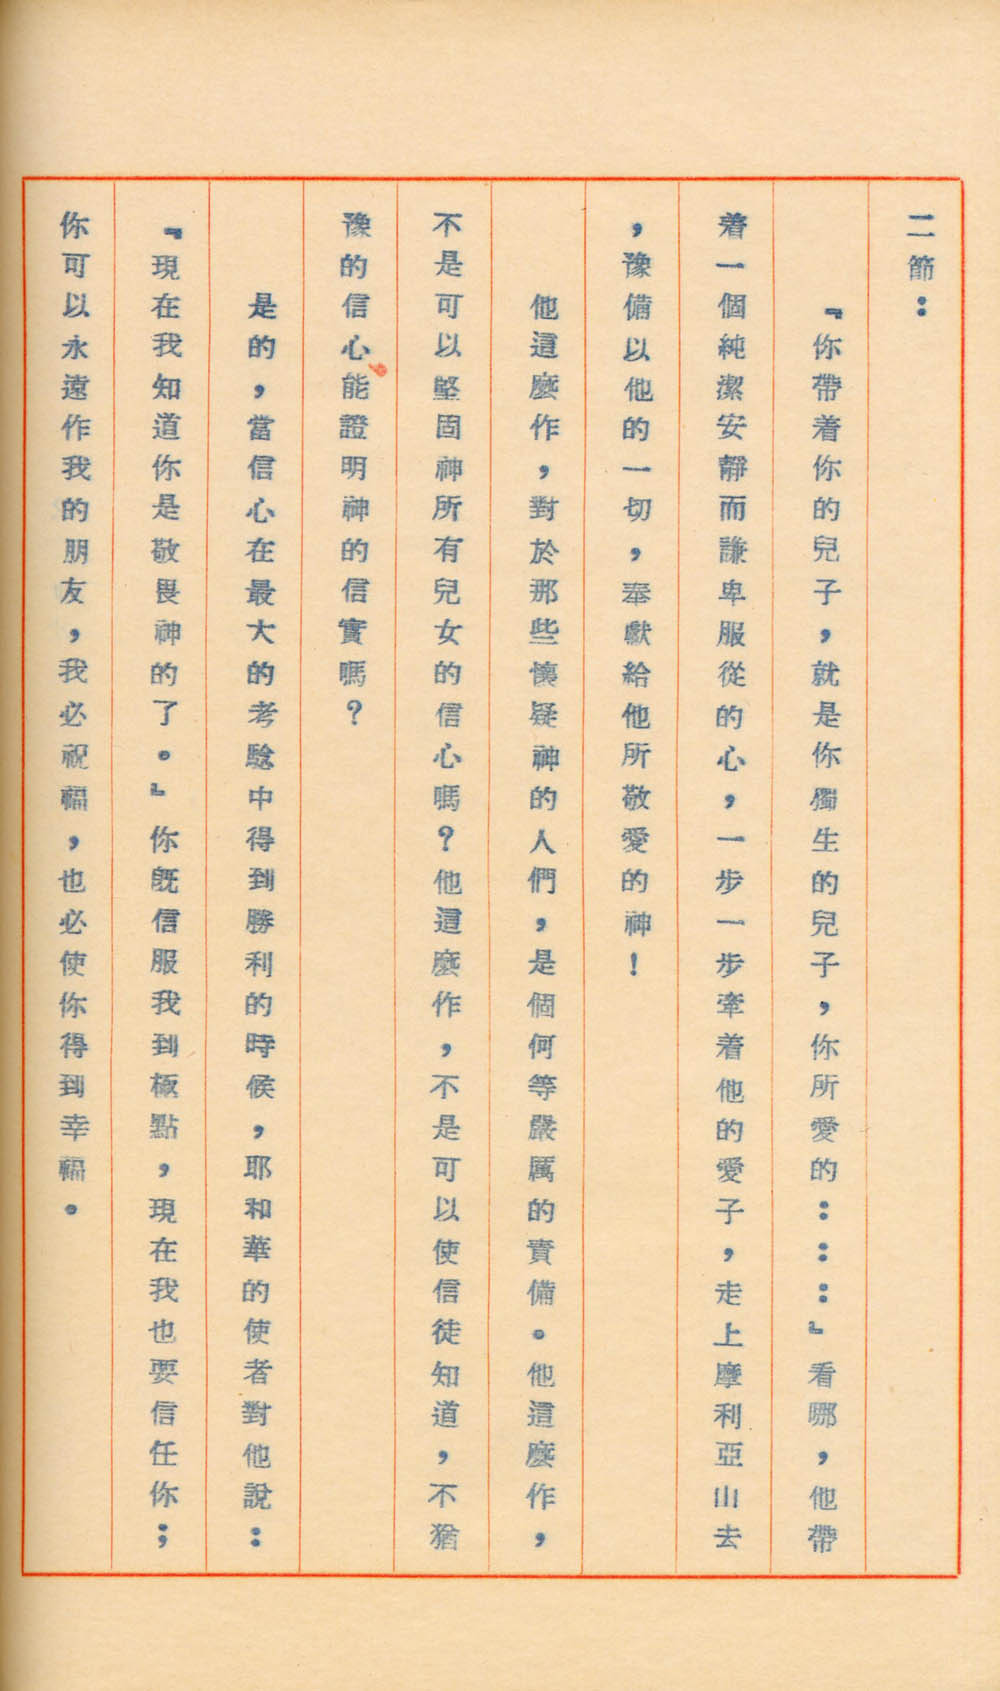 二節：
『你帶着你的兒子，就是你獨生的兒子，你所愛的：：：』看哪，他帶
着一個純潔安靜而謙卑服從的心，一步一步牽着他的愛子，走上摩利亞山去
，豫備以他的一切，奉獻給他所敬愛的神！
他這麼作，對於那些懷疑神的人們，是個何等嚴厲的責備。他這麼作，
不是可以堅固神所有兒女的信心嗎？他這麼作，不是可以使信徒知道，不猶
豫的信心能證明神的信實嗎？
是的，當信心在最大的考驗中得到勝利的時候，耶和華的使者對他說：
『現在我知道你是敬畏神的了。』你既信服我到極點，現在我也要信任你；
你可以永遠作我的朋友，我必祝福，也必使你得到幸福。